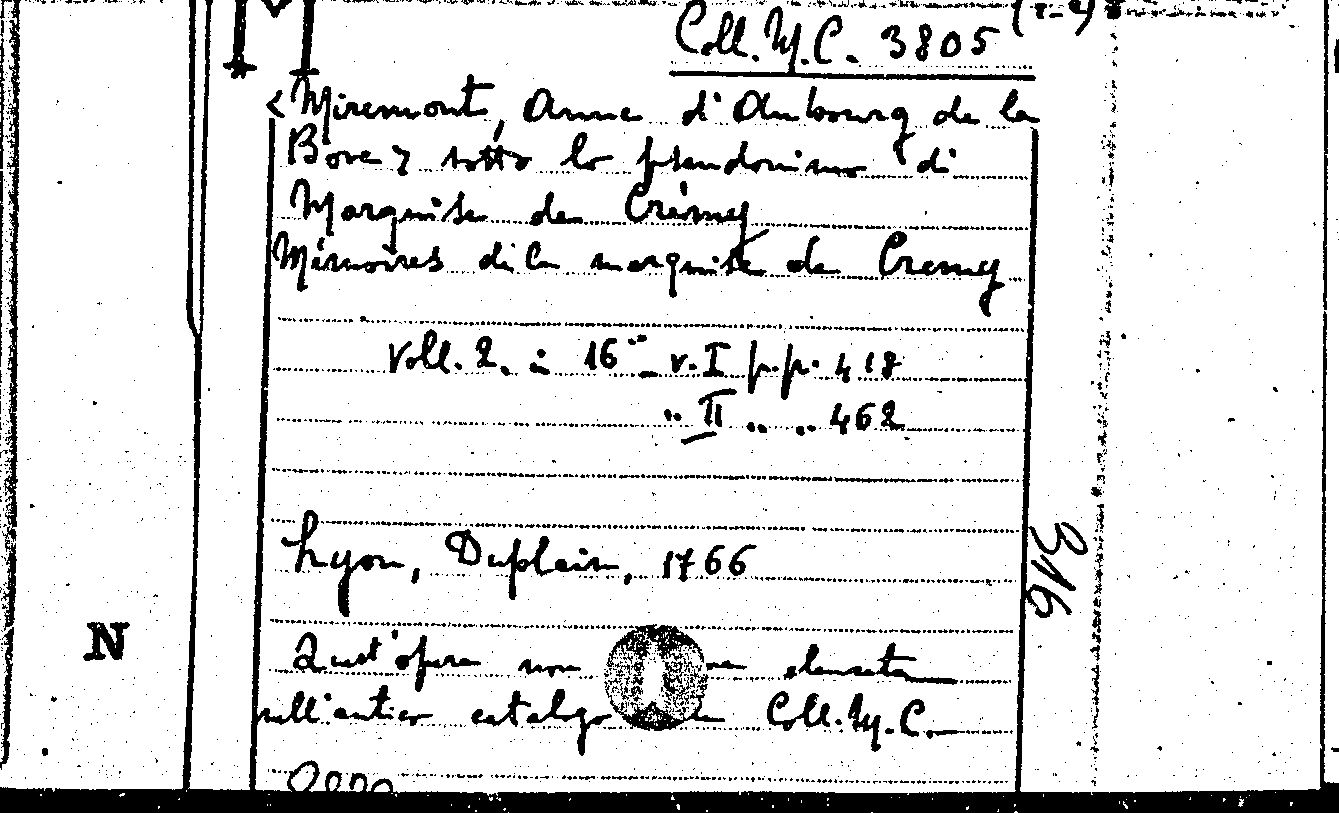 (1-2)
Coll. M.C. 3805
<Miremont, Anne d'Aubourg de la
Bove> sotto lo pseudonimo di
Marquise de Crémy
Mémoires de la marquise de Cremy
Voll. 2. in 16° _ v. I p.p. 418
" II " " 462
Lyon, Duplain, 1766
316
N
Quest'opera non elencata
nell'antico catalogo Coll. M.C.